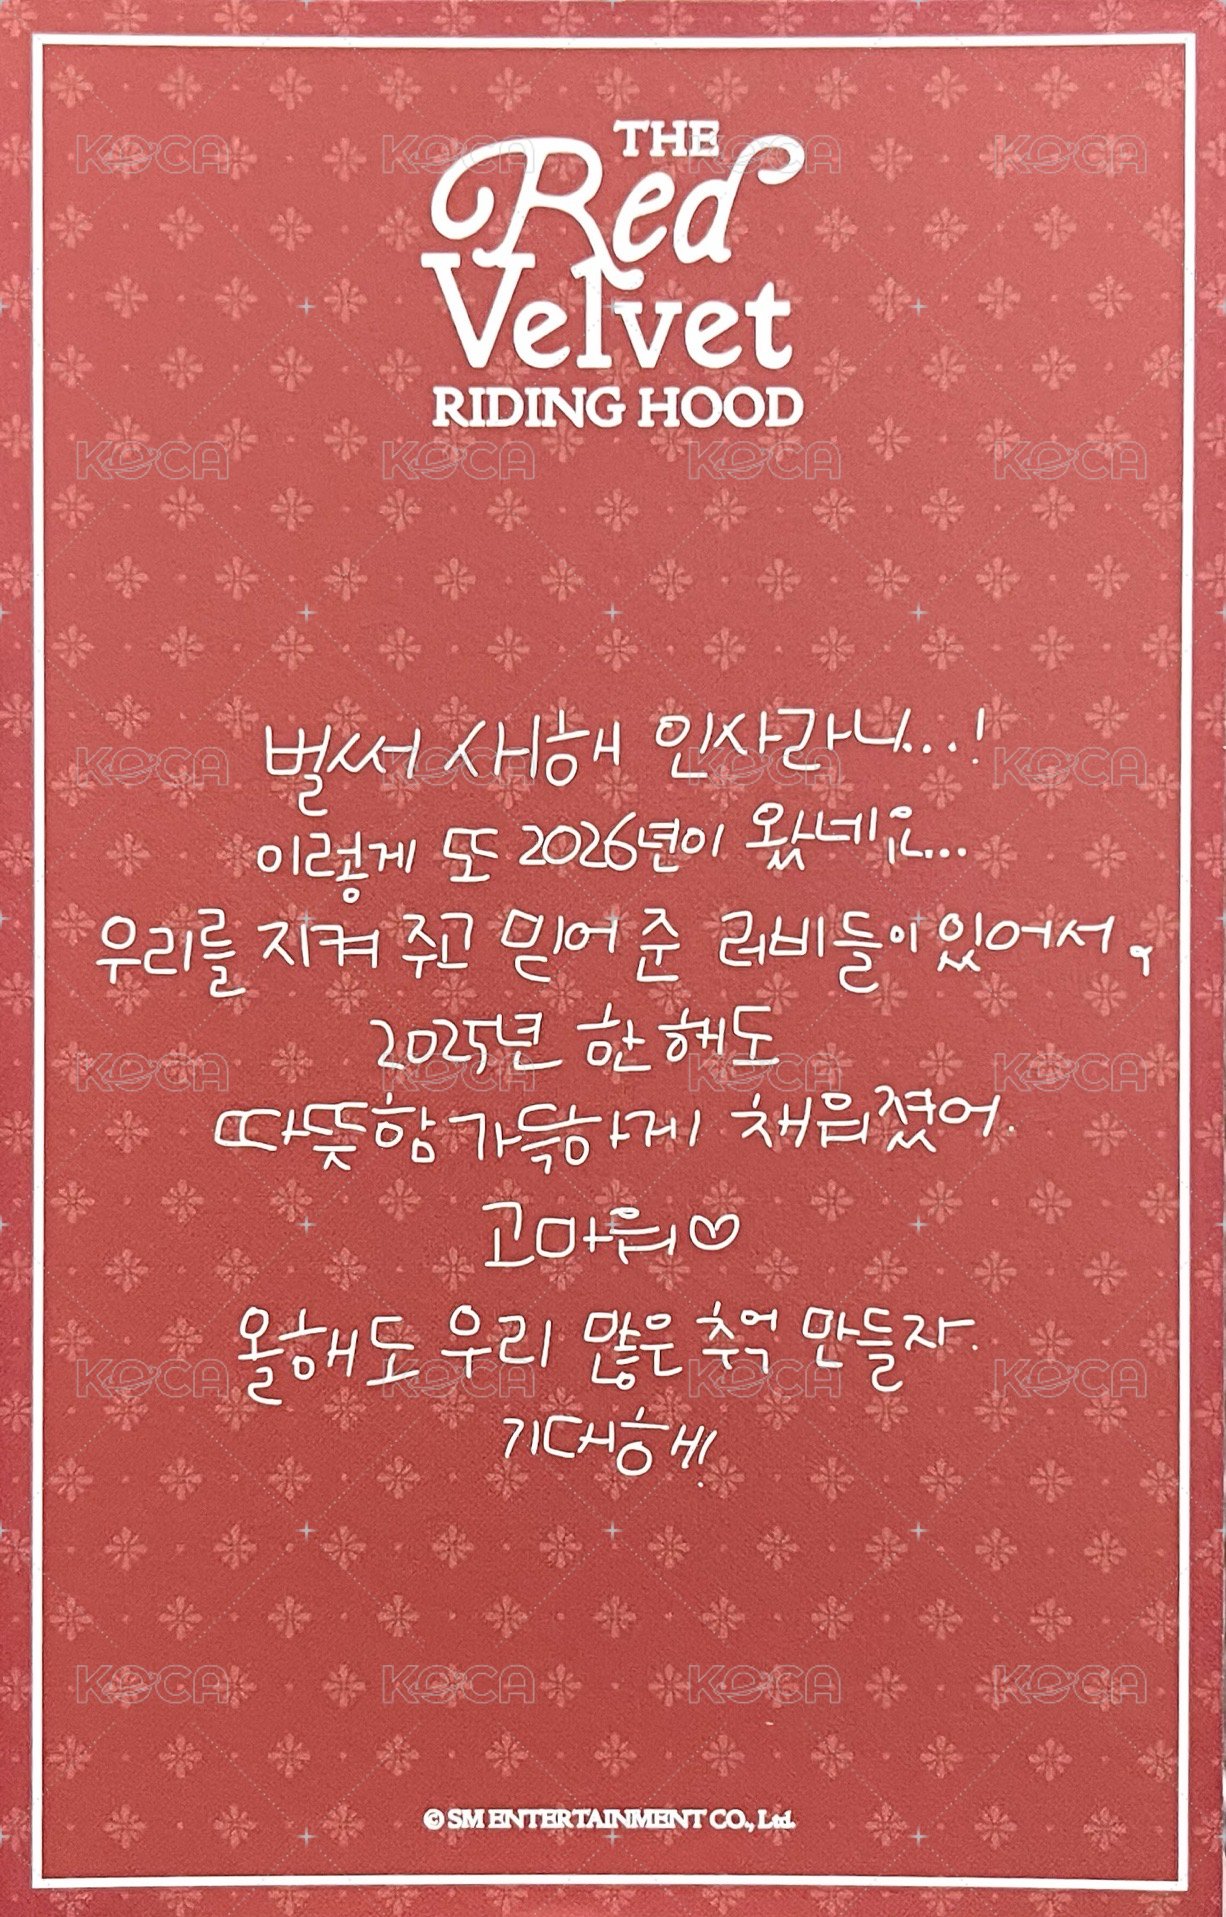 THE
Red
Velvet
RIDING HOOD
벌써 새해 인사라니...!
이렇게 또 2026년이 왔네요...
우리를 지켜 주고 믿어 준 러비들이 있어서,
2025년 한 해도
따뜻함 가득하게 채워졌어.
고마워♡
올해도 우리 많은 추억 만들자.
기대해!
© SM ENTERTAINMENT CO., Ltd.
KOCA KOCA KOCA KOCA
KOCA KOCA KOCA KOCA
KOCA KOCA KOCA KOCA
KOCA KOCA KOCA KOCA
KOCA KOCA KOCA KOCA
KOCA KOCA KOCA KOCA